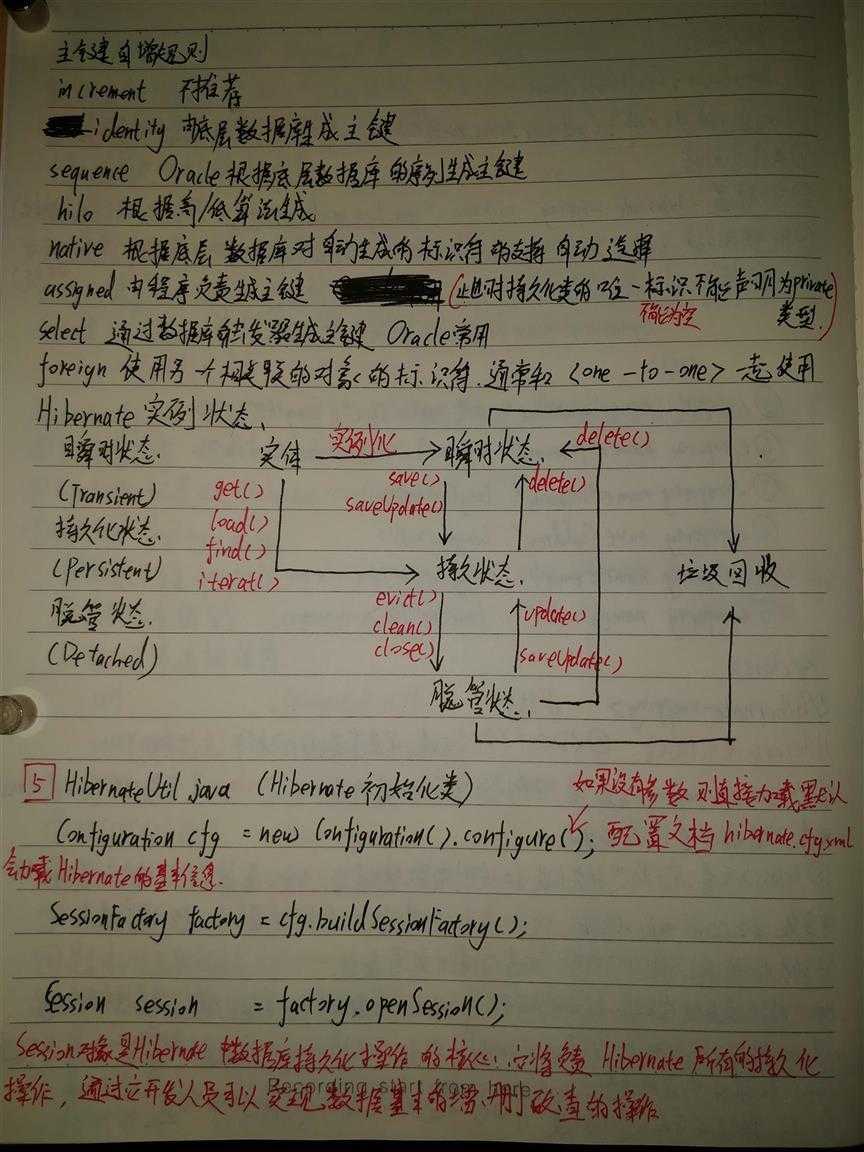 主键自增规则
increment 不推荐
identity 由底层数据库生成主键
sequence Oracle根据底层数据库的序列生成主键
hilo 根据高/低算法生成
native 根据底层数据库对自动生成的标识符的支持自动选择
assigned 由程序负责生成主键 (此时对持久化类的唯一标识不能声明为private
不能为空 类型.)
select 通过数据库触发器生成主键 Oracle常用
foreign 使用另一个相关联的对象的标识符.通常和<one-to-one>一起使用
Hibernate实例状态.
瞬时状态. 实体 实例化 瞬时状态. delete()
(Transient) get() save() saveUpdate() delete()
持久化状态. load() find()
(Persistent) iterat() 持久状态. 垃圾回收
脱管状态. evict() clean() update()
(Detached) close() saveUpdate()
脱管状态.
5 HibernateUtil.java (Hibernate初始化类) 如果没有参数则直接加载默认
Configuration cfg = new Configuration().configure(); 配置文档hibernate.cfg.xml
会加载Hibernate的基本信息.
SessionFactory factory = cfg.buildSessionFactory();
Session session = factory.openSession();
Session对象是Hibernate中数据库持久化操作的核心.它将负责Hibernate所有的持久化
操作,通过它开发人员可以实现数据基本的增.删改查的操作
Recording start from here